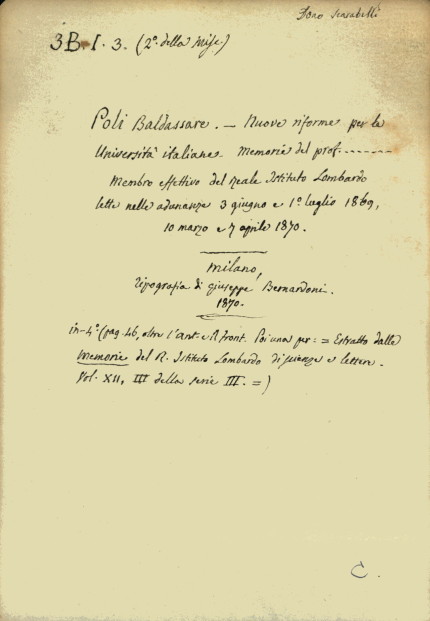 Dono Scarabelli
3B. I. 3. (2.° della Misc)
Poli Baldassare. — Nuove riforme per le
Università italiane. Memoria del prof. --------
Membro effettivo del Reale Istituto Lombardo
lette nelle adunanze 3 giugno e 1.° luglio 1869,
10 marzo e 7 aprile 1870.
Milano,
Tipografia di Giuseppe Bernardoni.
1870.
in-4.° (pag. 46, oltre l'ant. e il front. Poi una per: = Estratto dalle
Memorie del R. Istituto Lombardo di scienze e lettere.
Vol. XII, III della serie III. =)
C.